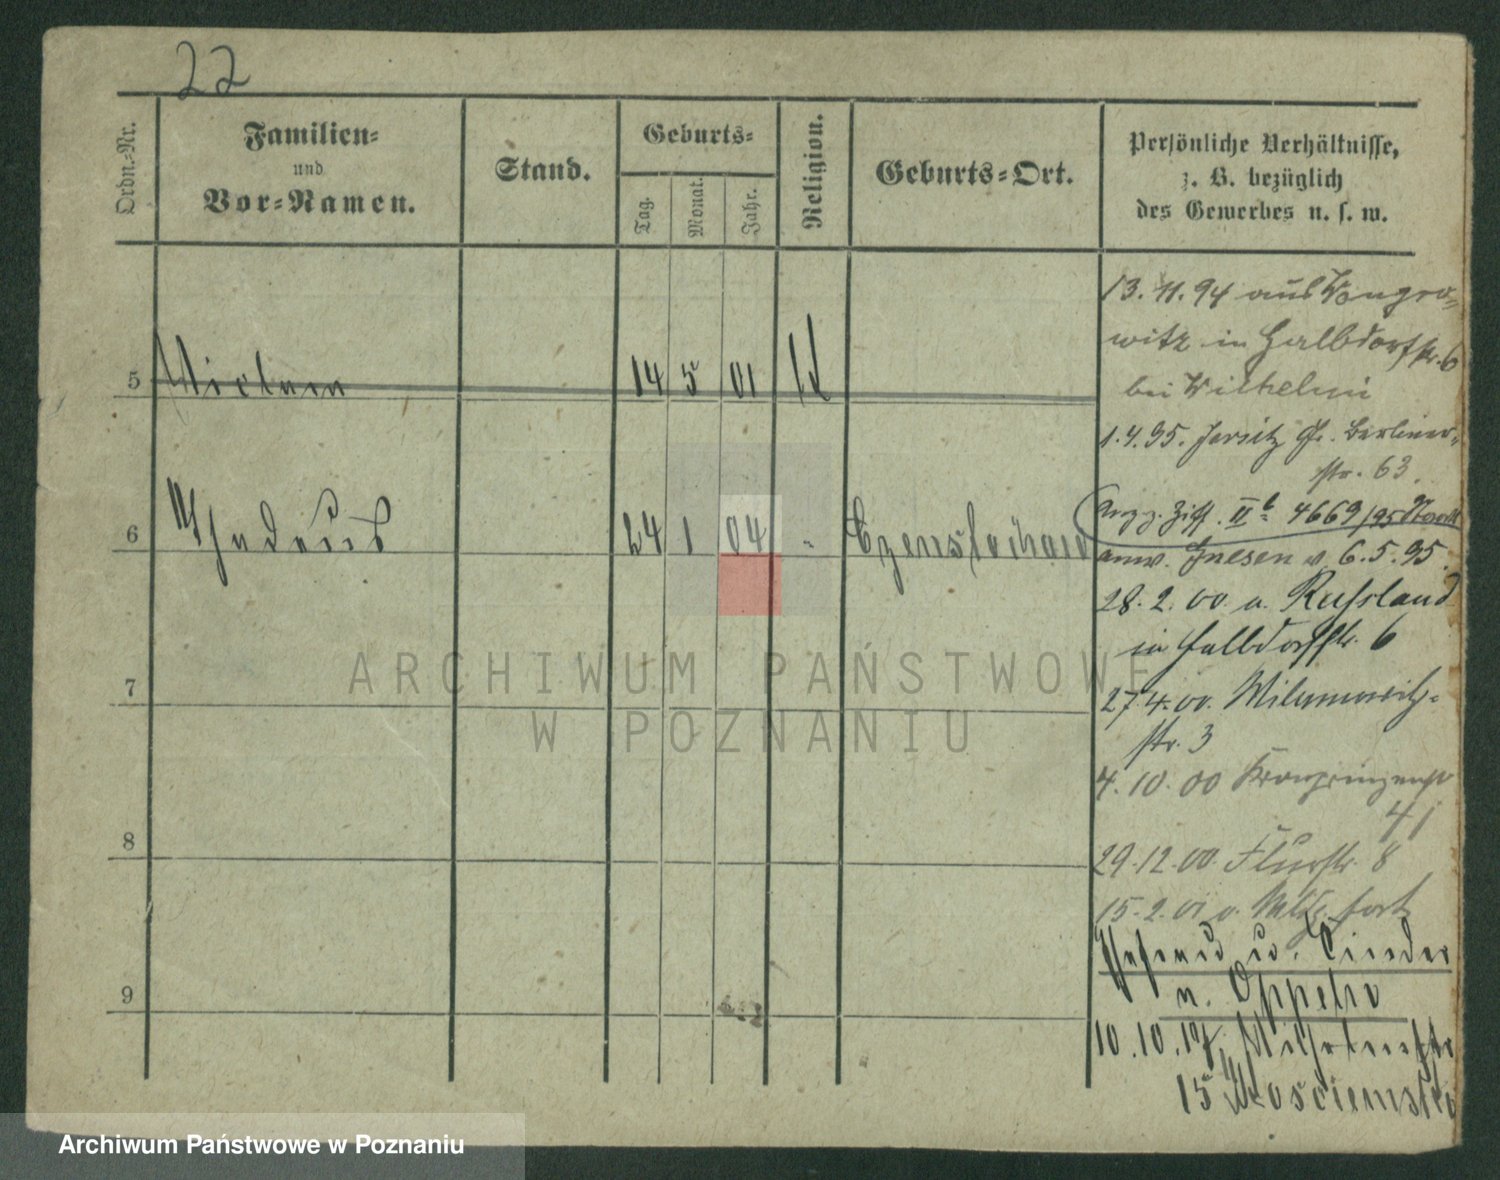 22
Ordn.-Nr.
Familien-
und
Vor-Namen.
Stand.
Geburts-
Tag.
Monat.
Jahr.
Religion.
Geburts-Ort.
Persönliche Verhältnisse,
z. B. bezüglich
des Gewerbes u. s. w.
13. 11. 94 aus Wongro-
witz in Halbdorfstr. 6
bei Wilhelmi
5 14 5 01
1. 4. 95. Jersitz Gr. Berliner-
str. 63.
II b 4669/95
6 Thadeus 24 1 04 - Czenstochau
anw. Gnesen v. 6. 5. 95.
28. 2. 00 a. Russland
in Halbdorfstr. 6
7
27 4. 00.
str. 3
4. 10. 00 Kronprinzenstr
41
8
29. 12. 00. Flurstr. 8
15. 2. 01 fort
Ehefrau u. Kinder
n. Oppeln
9
10. 10. Wilhelmstr
15
ARCHIWUM PAŃSTWOWE
W POZNANIU
Archiwum Państwowe w Poznaniu